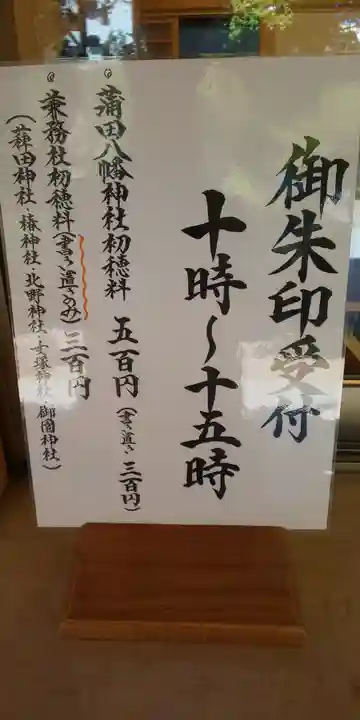 御朱印受付
十時～十五時
◎蒲田八幡神社初穂料 五百円（書き置き 三百円）
◎兼務社初穂料（書き置きのみ）三百円
（薭田神社・椿神社・北野神社・女塚神社・御園神社）